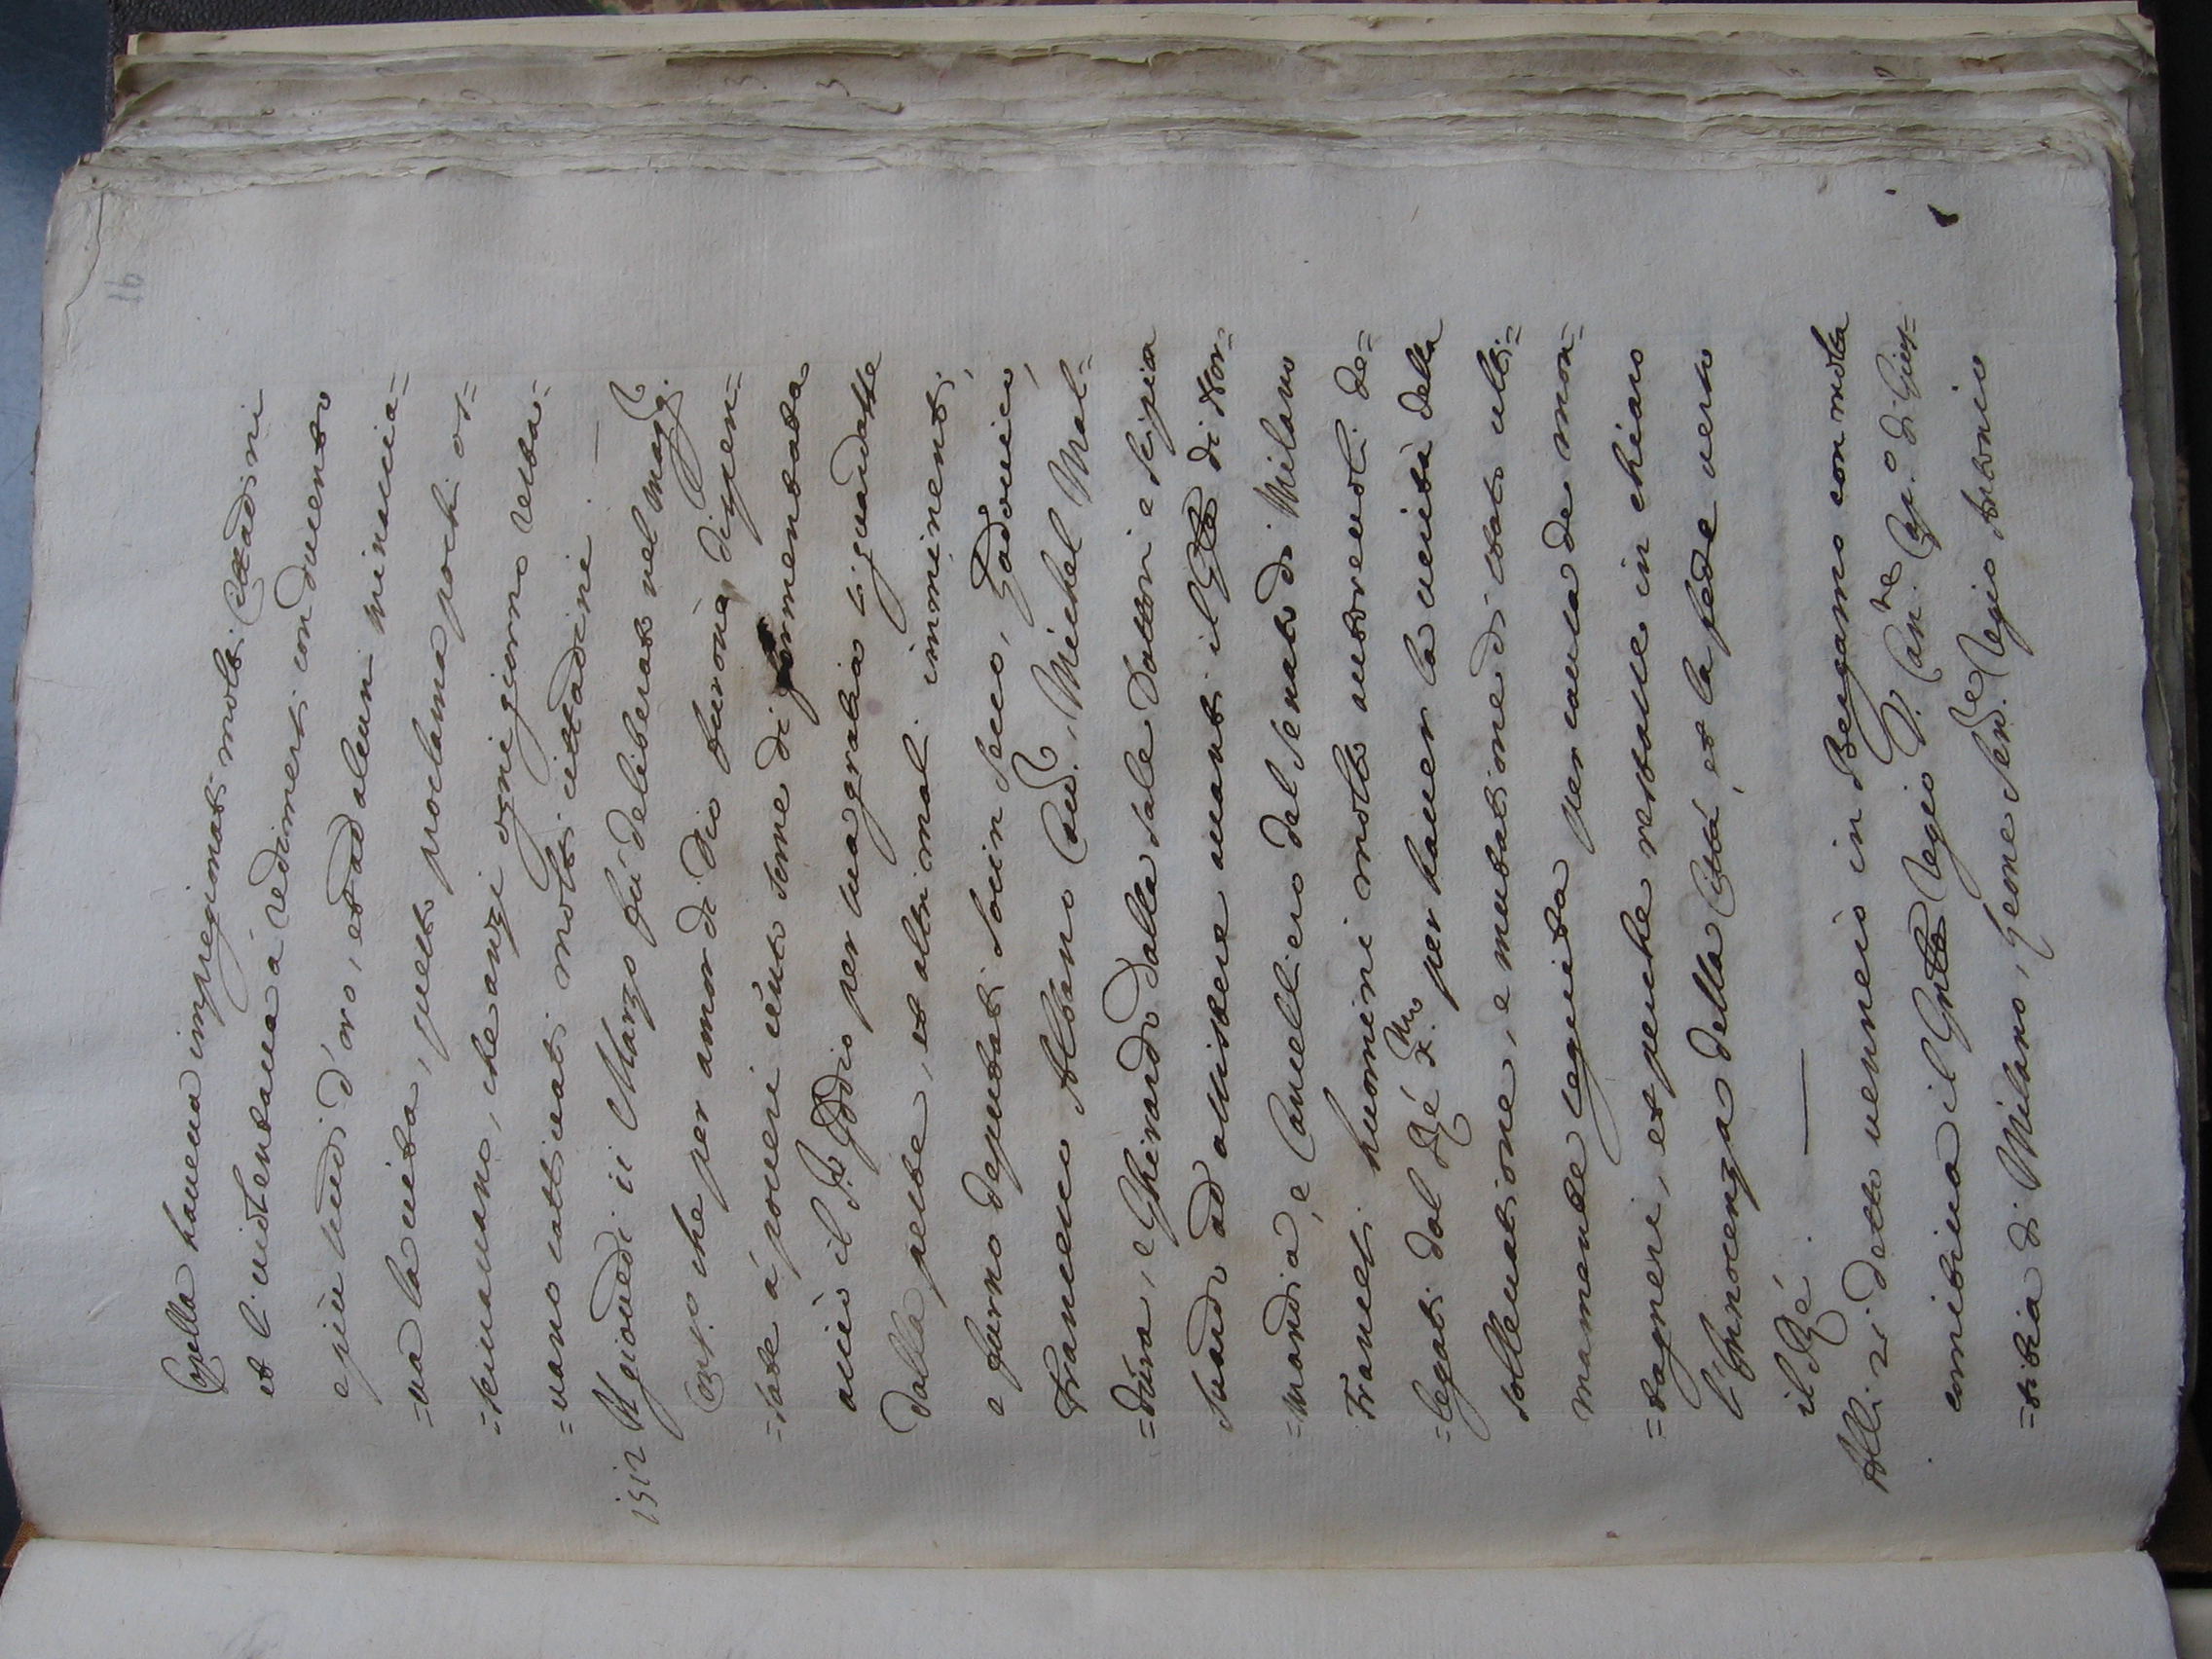 16
Capella haueua impregionati molti Cittadini
et l'uiolentaua à redimersi con ducento
e più scudi d'oro, et ad alcuni minaccia=
=ua la uita, questo proclama pochi os=
=seruauano, che anzi ogni giorno resta=
=uano cattiuati molti cittadini.
1512 Il giouedi 11 Marzo fù deliberato nel Magg.r
Cons.o che per amor di Dio furono dispen=
=sate à poueri cento some di formentata
acciò il S.r Iddio per sua gratia li guardasse
dalla peste, et altri mali imminenti,
e furno deputati Soccin Secco, Lodouico,
Francesco Albano Cau.r, Michel Mal=
=dura, e Ghirardo dalla Sale Dottori e Scipion
Suardo ad assistere auanti il Gñte di Nor=
=mandia, e Cancelliero del Senato di Milano
Francesi huomini molto autoreuoli de=
=legati dal Rè X.mo per hauer la uerità della
solleuatione, e mutatione di stato ulti=
mamente seguita per causa de mon=
=tagneri, et perche restasse in chiaro
l'Innocenza della Città, et la fede uerso
il Rè.
Alli 21 detto uennero in Bergamo con molta
comitiua il Gñte Regio D. Can.re Cap.o di Gius=
=titia di Milano, Leone Sen.re Regio Antonio